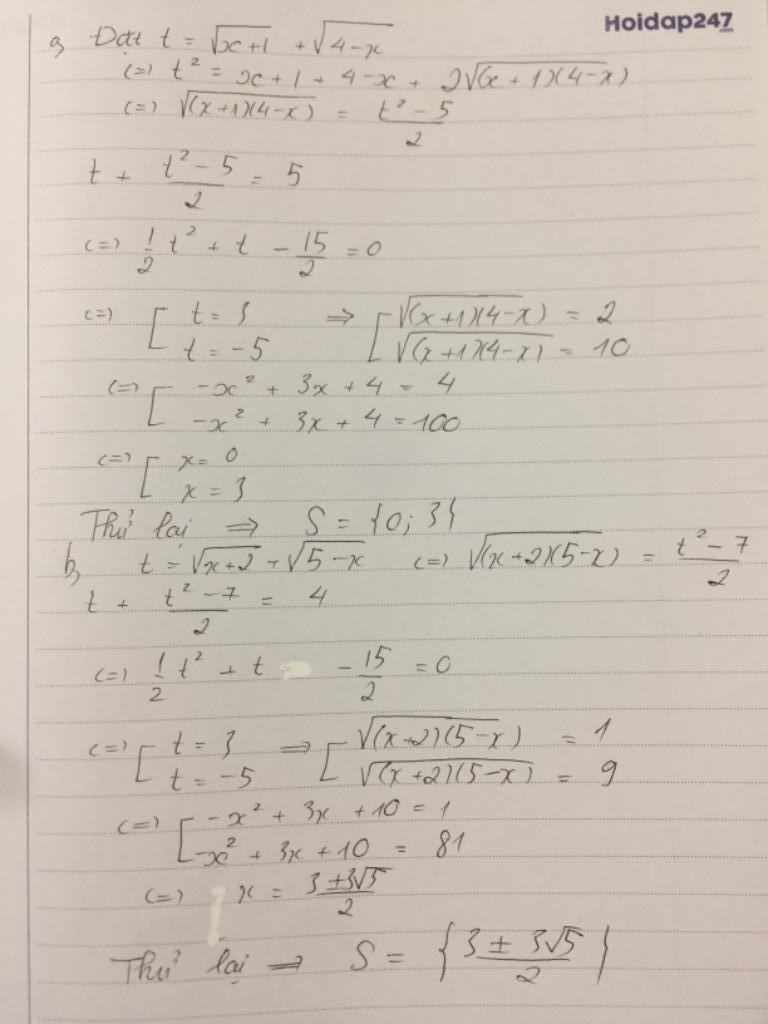 Hoidap247.com
a, Đặt t = √(x+1) + √(4-x)
(=) t² = x + 1 + 4 - x + 2√((x+1)(4-x))
(=) √((x+1)(4-x)) = (t² - 5)/2
t + (t² - 5)/2 = 5
(=) 1/2 t² + t - 15/2 = 0
(=) [ t = 3 ⇒ [ √((x+1)(4-x)) = 2
t = -5 √((x+1)(4-x)) = 10
(=) [ -x² + 3x + 4 = 4
-x² + 3x + 4 = 100
(=) [ x = 0
x = 3
Thử lại ⇒ S = {0; 3}
b, t = √(x+2) + √(5-x) (=) √((x+2)(5-x)) = (t² - 7)/2
t + (t² - 7)/2 = 4
(=) 1/2 t² + t - 15/2 = 0
(=) [ t = 3 ⇒ [ √((x+2)(5-x)) = 1
t = -5 √((x+2)(5-x)) = 9
(=) [ -x² + 3x + 10 = 1
-x² + 3x + 10 = 81
(=) x = (3 ± 3√5)/2
Thử lại ⇒ S = { (3 ± 3√5)/2 }